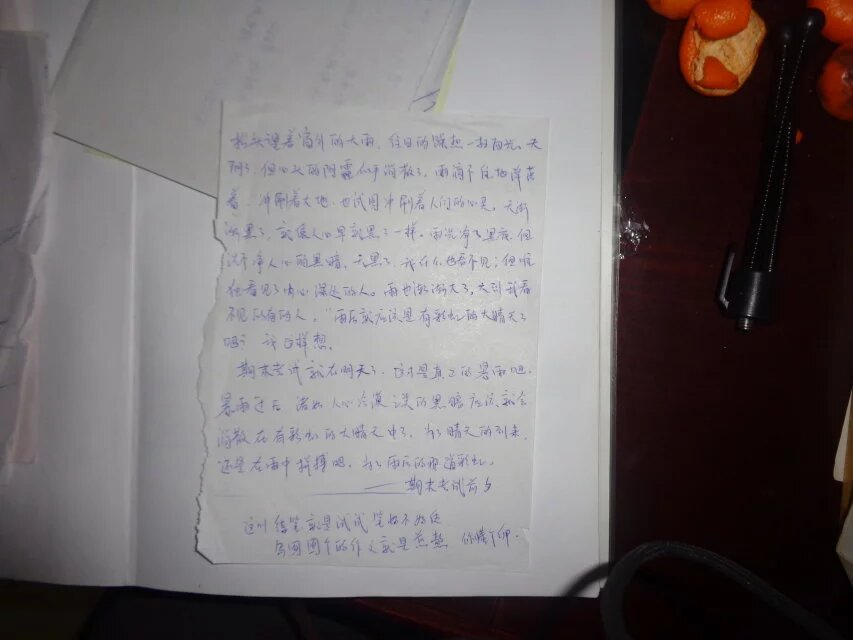 抬头望着窗外的大雨，往日的躁热一扫而光。天
阴了，但心头的阴霾似乎消散了，雨滴不住地降落
着，冲刷着大地，也试图冲刷着人们的心灵。天渐
渐黑了，就像人心早就黑了一样。雨洗净了黑夜，但
洗不净人心的黑暗，天黑了，我什么也看不见；但唯
独看见了内心深处的人。雨也渐渐大了，大到我看
不见所有的人，“雨后就应该是有彩虹的大晴天了
吧？我这样想。
期末考试就在明天了，这才是真正的暴雨吧，
暴雨过后，诸如人心冷漠之类的黑暗应该就会
消散在有彩虹的大晴天中了，为了晴天的到来，
还是在雨中拼搏吧，为了雨后的那道彩虹。
——期末考试前夕
这训练笔就是试试笔好不好使
写圈圈个的作文就是煎熬 你懂个卵.